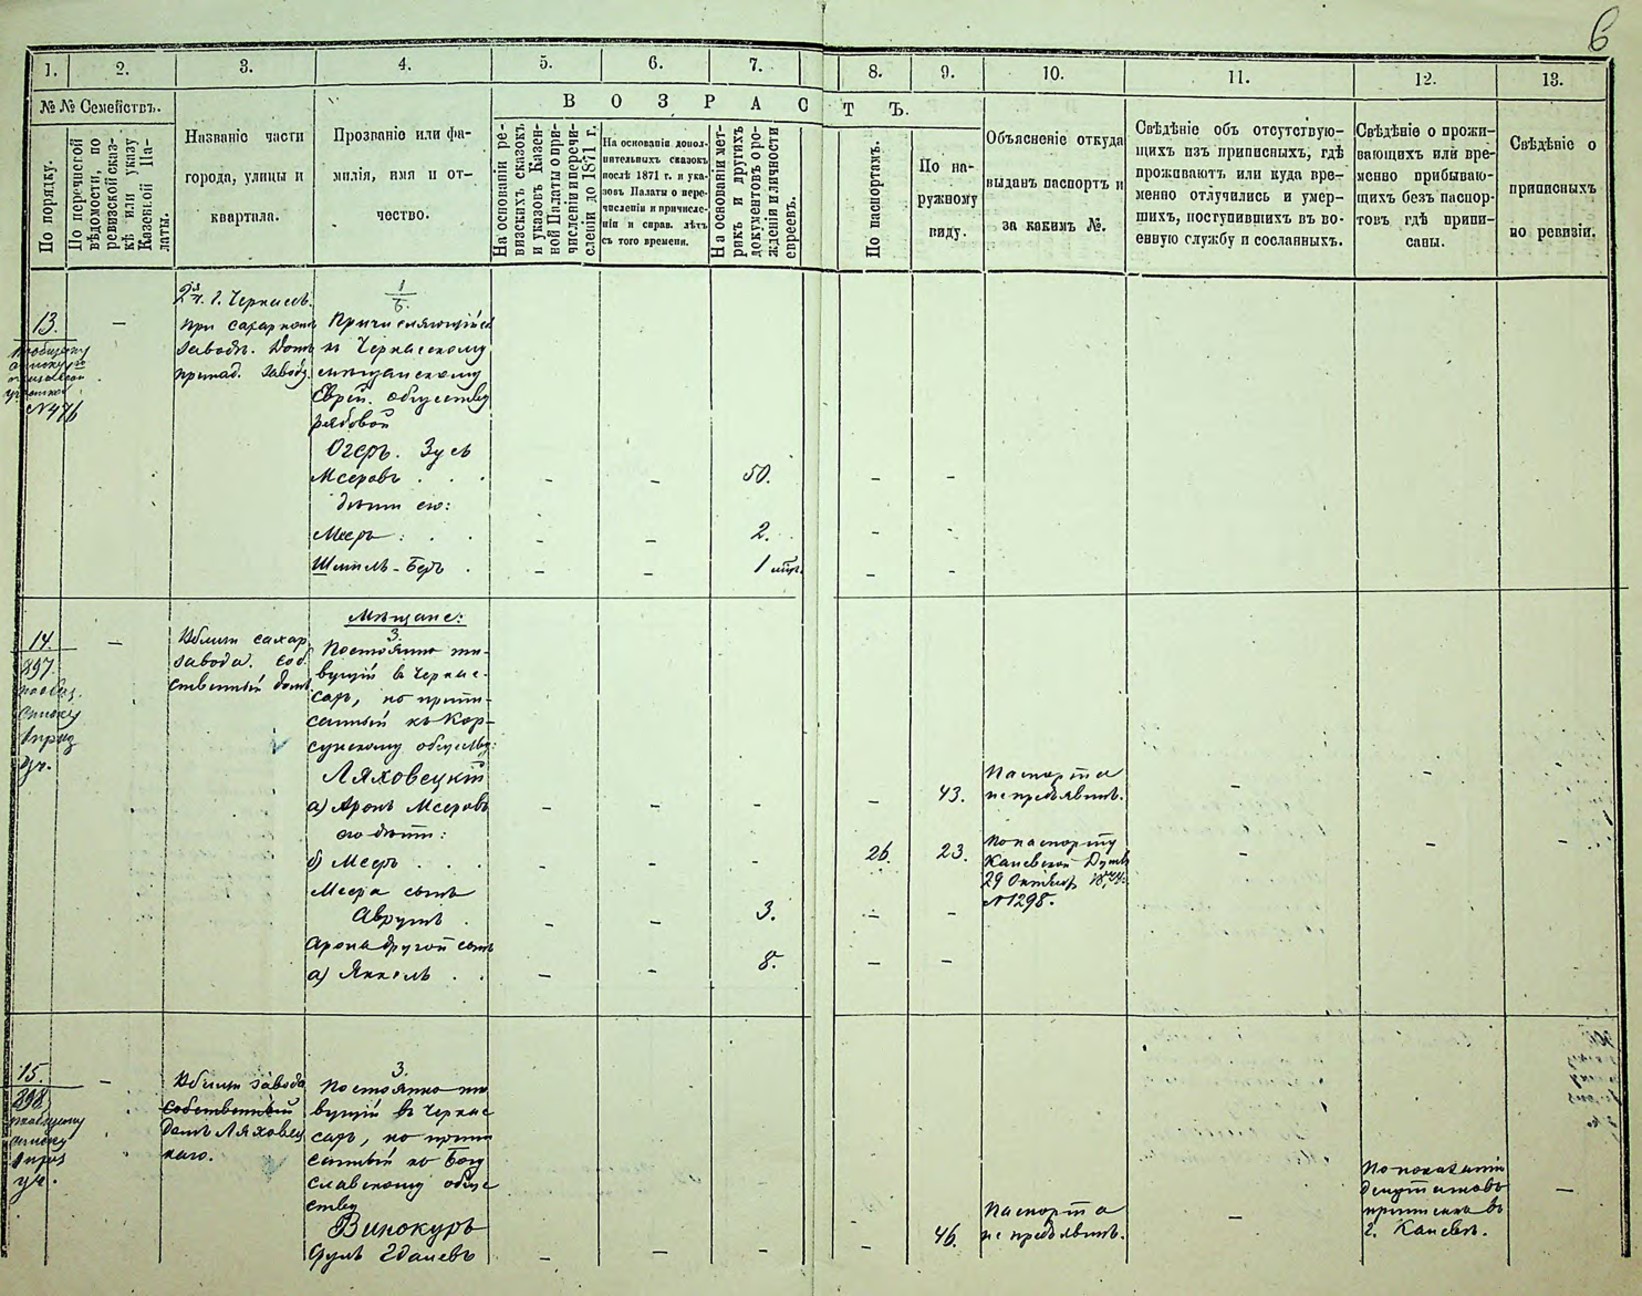 6
1. 2. 3. 4. 5. 6. 7. 8. 9. 10. 11. 12. 13.
№ № Семействъ.
По порядку.
По перечневой
вѣдомости, по
ревизской сказ-
кѣ или указу
Казенной Па-
латы.
Названіе части
города, улицы и
квартала.
Прозваніе или фа-
милія, имя и от-
чество.
ВОЗРАСТЪ.
На основаніи ре-
визскихъ сказокъ
и указовъ Казен-
ной Палаты о при-
численіи и перечи-
сленіи до 1871 г.
На основаніи допол-
нительныхъ сказокъ
послѣ 1871 г. и ука-
зовъ Палаты о пере-
численіи и причисле-
ніи и справ. лѣтъ
съ того времени.
На основаніи мет-
рикъ и другихъ
документовъ о ро-
жденіи и личности
евреевъ.
По паспортамъ.
По на-
ружному
виду.
Объясненіе откуда
выданъ паспортъ и
за какимъ №.
Свѣдѣніе объ отсутствую-
щихъ изъ приписныхъ, гдѣ
проживаютъ или куда вре-
менно отлучились и умер-
шихъ, поступившихъ въ во-
енную службу и сосланныхъ.
Свѣдѣніе о прожи-
вающихъ или вре-
менно прибываю-
щихъ безъ паспор-
товъ гдѣ припи-
саны.
Свѣдѣніе о
приписныхъ
по ревизіи.
13.
№ 476
г. Черкасъ.
при сахарномъ
заводѣ. Домъ
принад. заводу.
Причисляющійся
къ Черкасскому
мѣщанскому
Еврей. обществу
рядовой
Огеръ. Зусь
Мееровъ . . . - - 50. - -
дѣти его:
Мееръ . . . - - 2. - -
Шмиль-Беръ . - - 1 мѣс. - -
14.
897
по общ.
списку
1 приз
уч.
Вблизи сахар.
завода. Соб-
ственный домъ
Мѣщане:
3.
Постоянно жи-
вущій в Черкас-
сахъ, но припи-
санный къ Кор-
сунскому обществу:
Ляховецкій
а) Аронъ Мееровъ - - - - 43. Паспорта
не предъявилъ. - - -
его дѣти:
б) Мееръ . . . - - - 26. 23. По паспорту
Каневской Думы
29 Октября
№ 1298. - - -
Меера сынъ
Аврумъ . - - 3. - -
Арона другой сынъ
а) Янкель . . - - 8. - -
15.
898
по общему
списку
1 приз
уч.
Вблизи завода
собственный
домъ Ляховец
каго.
3.
Постоянно жи
вущій въ Черкас
сахъ, но припи
санный къ Богу
славскому обще
ству
Винокуръ
Сруль Гдалевъ - - - - 46. Паспорта
не предъявилъ. -
По показанію
депутатовъ
приписанъ въ
г. Каневѣ. -